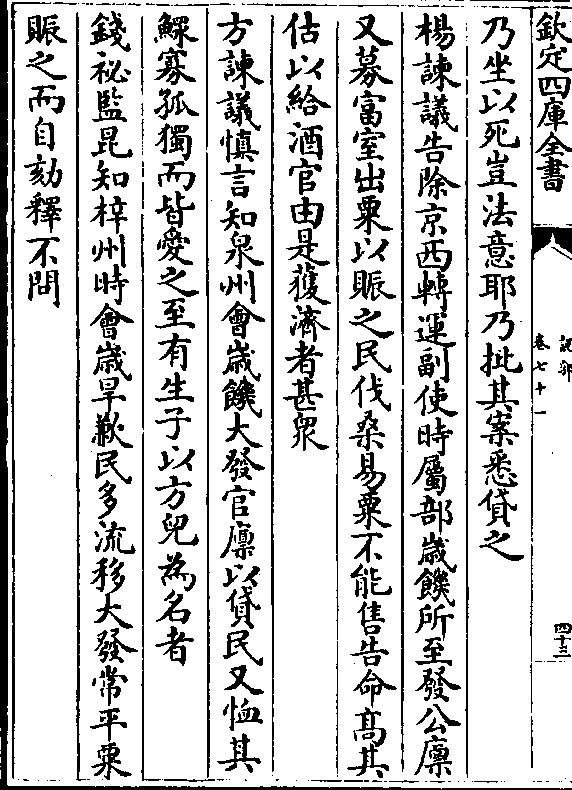 欽定四庫全書
說郛
卷七十一
四十三
乃坐以死豈法意耶乃批其案悉貸之
楊諫議告除京西轉運副使時屬部歲饑所至發公廩
又募富室出粟以賑之民伐桑易粟不能售告命高其
估以給酒官由是獲濟者甚衆
方諫議慎言知泉州會歲饑大發官廪以貸民又恤其
鰥寡孤獨而皆愛之至有生子以方兒為名者
錢祕監昆知梓州時會歲旱歉民多流移大發常平粟
賑之而自劾釋不問